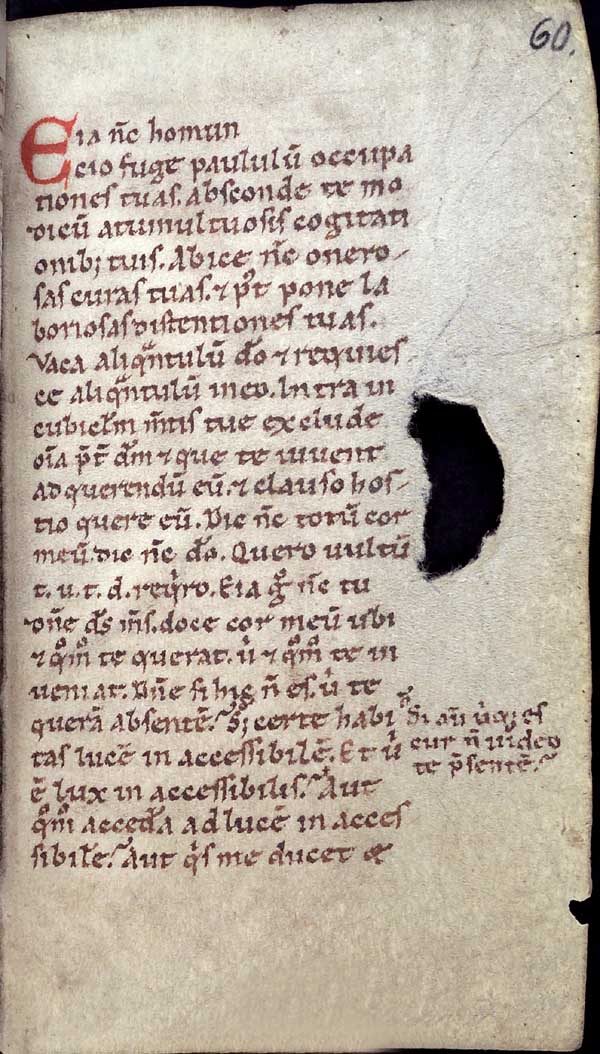 60.
Eia n̄c homun
cio fuge paululū occupa
tiones tuas. absconde te mo
dicū atumultuosis cogitati
onib; tuis. Abice n̄c onero-
sas curas tuas. ⁊ p̾t pone la
boriosas distentiones tuas.
Vaca aliqᵃntulū d̄o ⁊ requies
ce aliqᵃntulū in eo. Intra in
cubiclm̄ m̄tis tue exclude
oīa p̄t d̄m ⁊ que te iuvent
ad querendū eū. ⁊ clauso hos-
tio quere eū. Dic n̄c totū cor
meū. dic n̄c d̄o. Quero vultū
t. u. t. d. reqⁱro. Eia gᵒ n̄c tu
dn̄e d̄s m̄s. doce cor meū ubi
⁊ qᵒm̊ te querat. uͥ ⁊ qᵒm̊ te in
veniat. Dn̄e si hic n̄ es. uͥ te
querā absentē. S; certe habi
tas lucē in accessibilē. Et uͥ
ē lux in accessibilis. Aut
qᵒm̊ accedā ad lucē in acces
sibilē. Aut qⁱs me ducet &
Si aū uͥq; es
cur n̄ video
te p̄sentē.